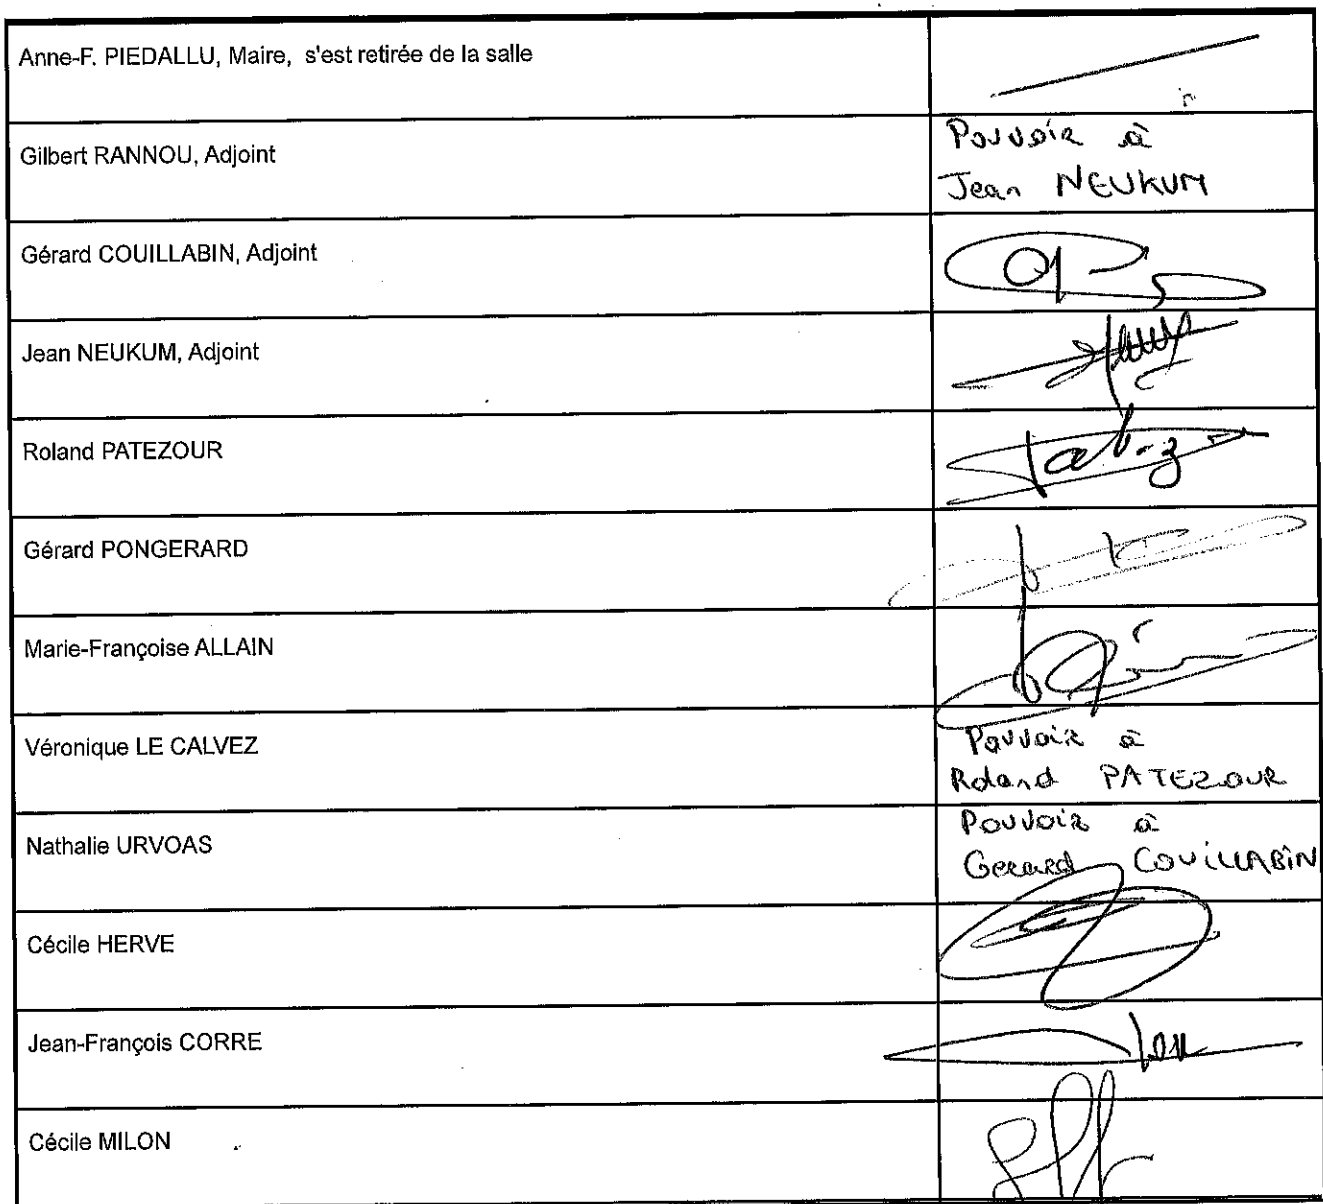 Anne-F. PIEDALLU, Maire, s'est retirée de la salle
Gilbert RANNOU, Adjoint
Pouvoir à
Jean NEUKUM
Gérard COUILLABIN, Adjoint
Jean NEUKUM, Adjoint
Roland PATEZOUR
Gérard PONGERARD
Marie-Françoise ALLAIN
Véronique LE CALVEZ
Pouvoir à
Roland PATEZOUR
Nathalie URVOAS
Pouvoir à
Gerard COUILLABIN
Cécile HERVE
Jean-François CORRE
Cécile MILON